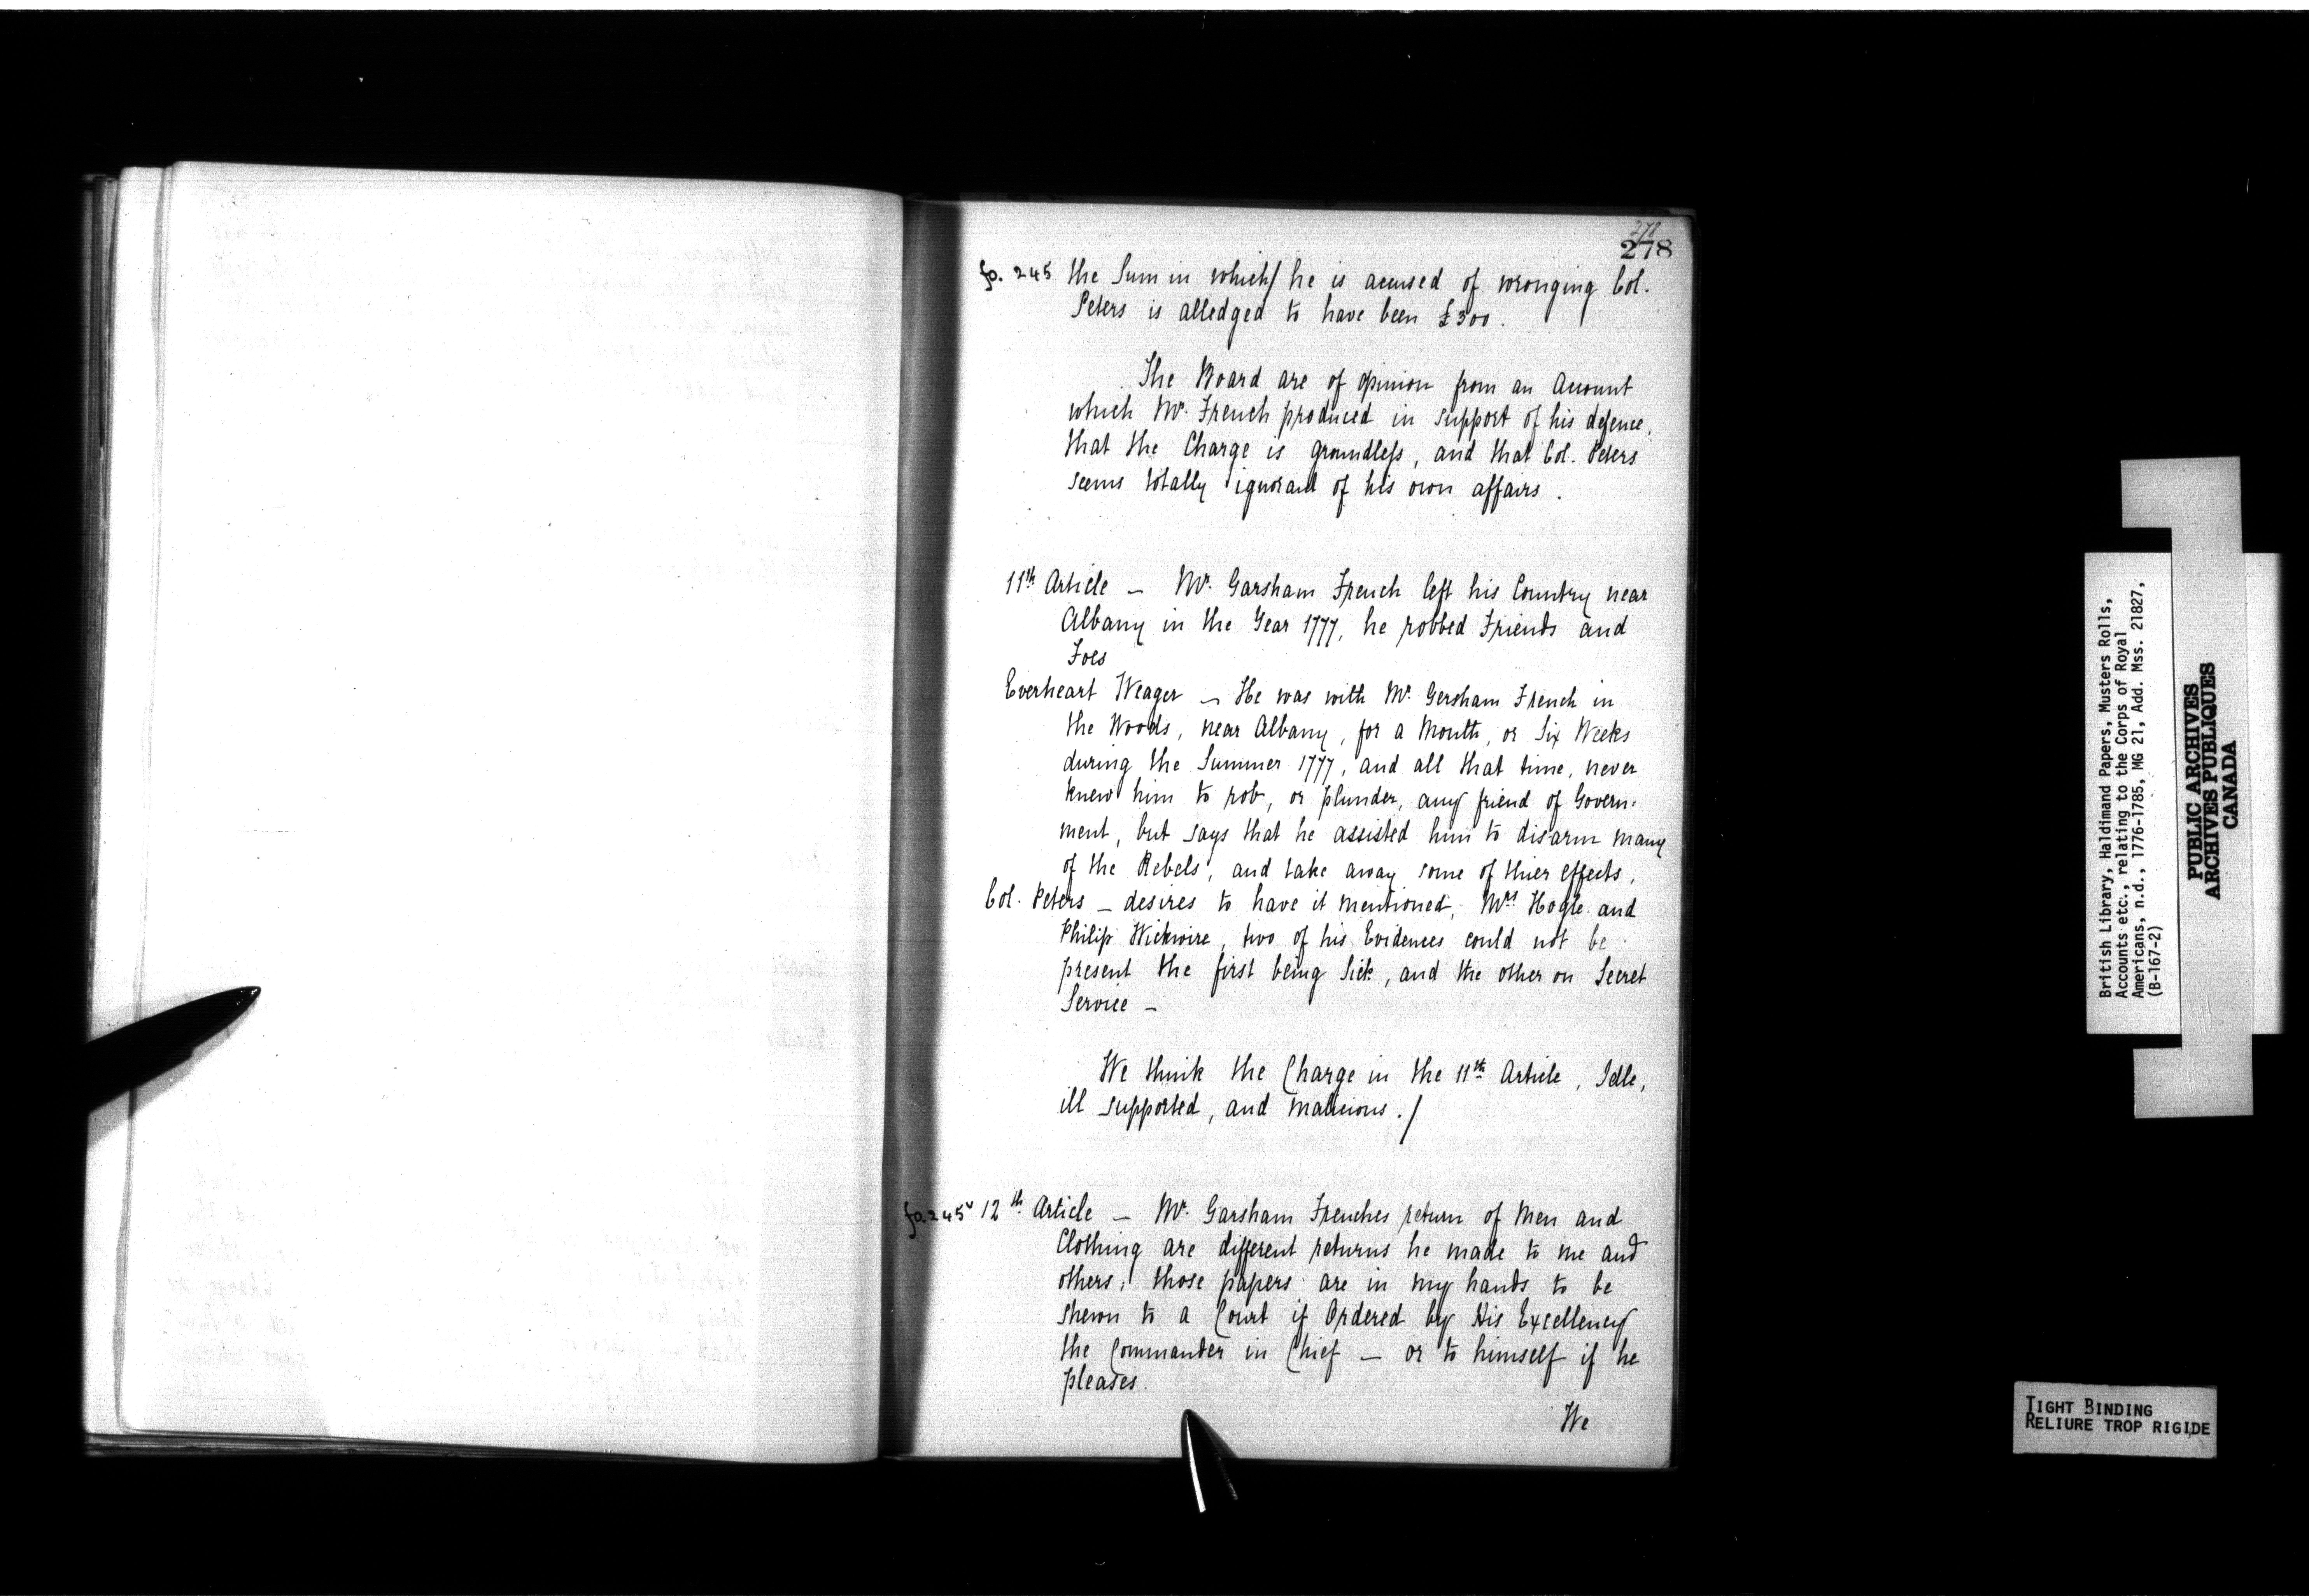 278
278
fo. 245 the Sum in which/ he is accused of wronging Col.
Peters is alledged to have been £300.
The Board are of opinion from an Account
which Mr. French produced in support of his defence,
that the Charge is groundless, and that Col. Peters
seems totally ignorant of his own affairs.
11th Article — Mr. Garsham French left his Country near
Albany in the Year 1777, he robbed Friends and
Foes
Everheart Weager — He was with Mr. Gersham French in
the Woods, near Albany, for a Month, or Six Weeks
during the Summer 1777, and all that time, never
knew him to rob, or plunder, any friend of Govern:
ment, but says that he assisted him to disarm many
of the Rebels, and take away some of thier effects.
Col. Peters — desires to have it mentioned, Mrs Hogle and
Philip Wickwire, two of his Evidences could not be
present the first being Sick, and the other on Secret
Service —
We think the Charge in the 11th Article, Idle,
ill supported, and malicious./
fo. 245v 12th Article — Mr. Garsham Frenches return of Men and
Clothing are different returns he made to me and
others; those papers are in my hands to be
shewn to a Court if Ordered by His Excellency
the Commander in Chief — or to himself if he
pleases.
We
British Library, Haldimand Papers, Musters Rolls,
Accounts etc., relating to the Corps of Royal
Americans, n.d., 1776-1785, MG 21, Add. Mss. 21827,
(B-167-2)
PUBLIC ARCHIVES
ARCHIVES PUBLIQUES
CANADA
TIGHT BINDING
RELIURE TROP RIGIDE